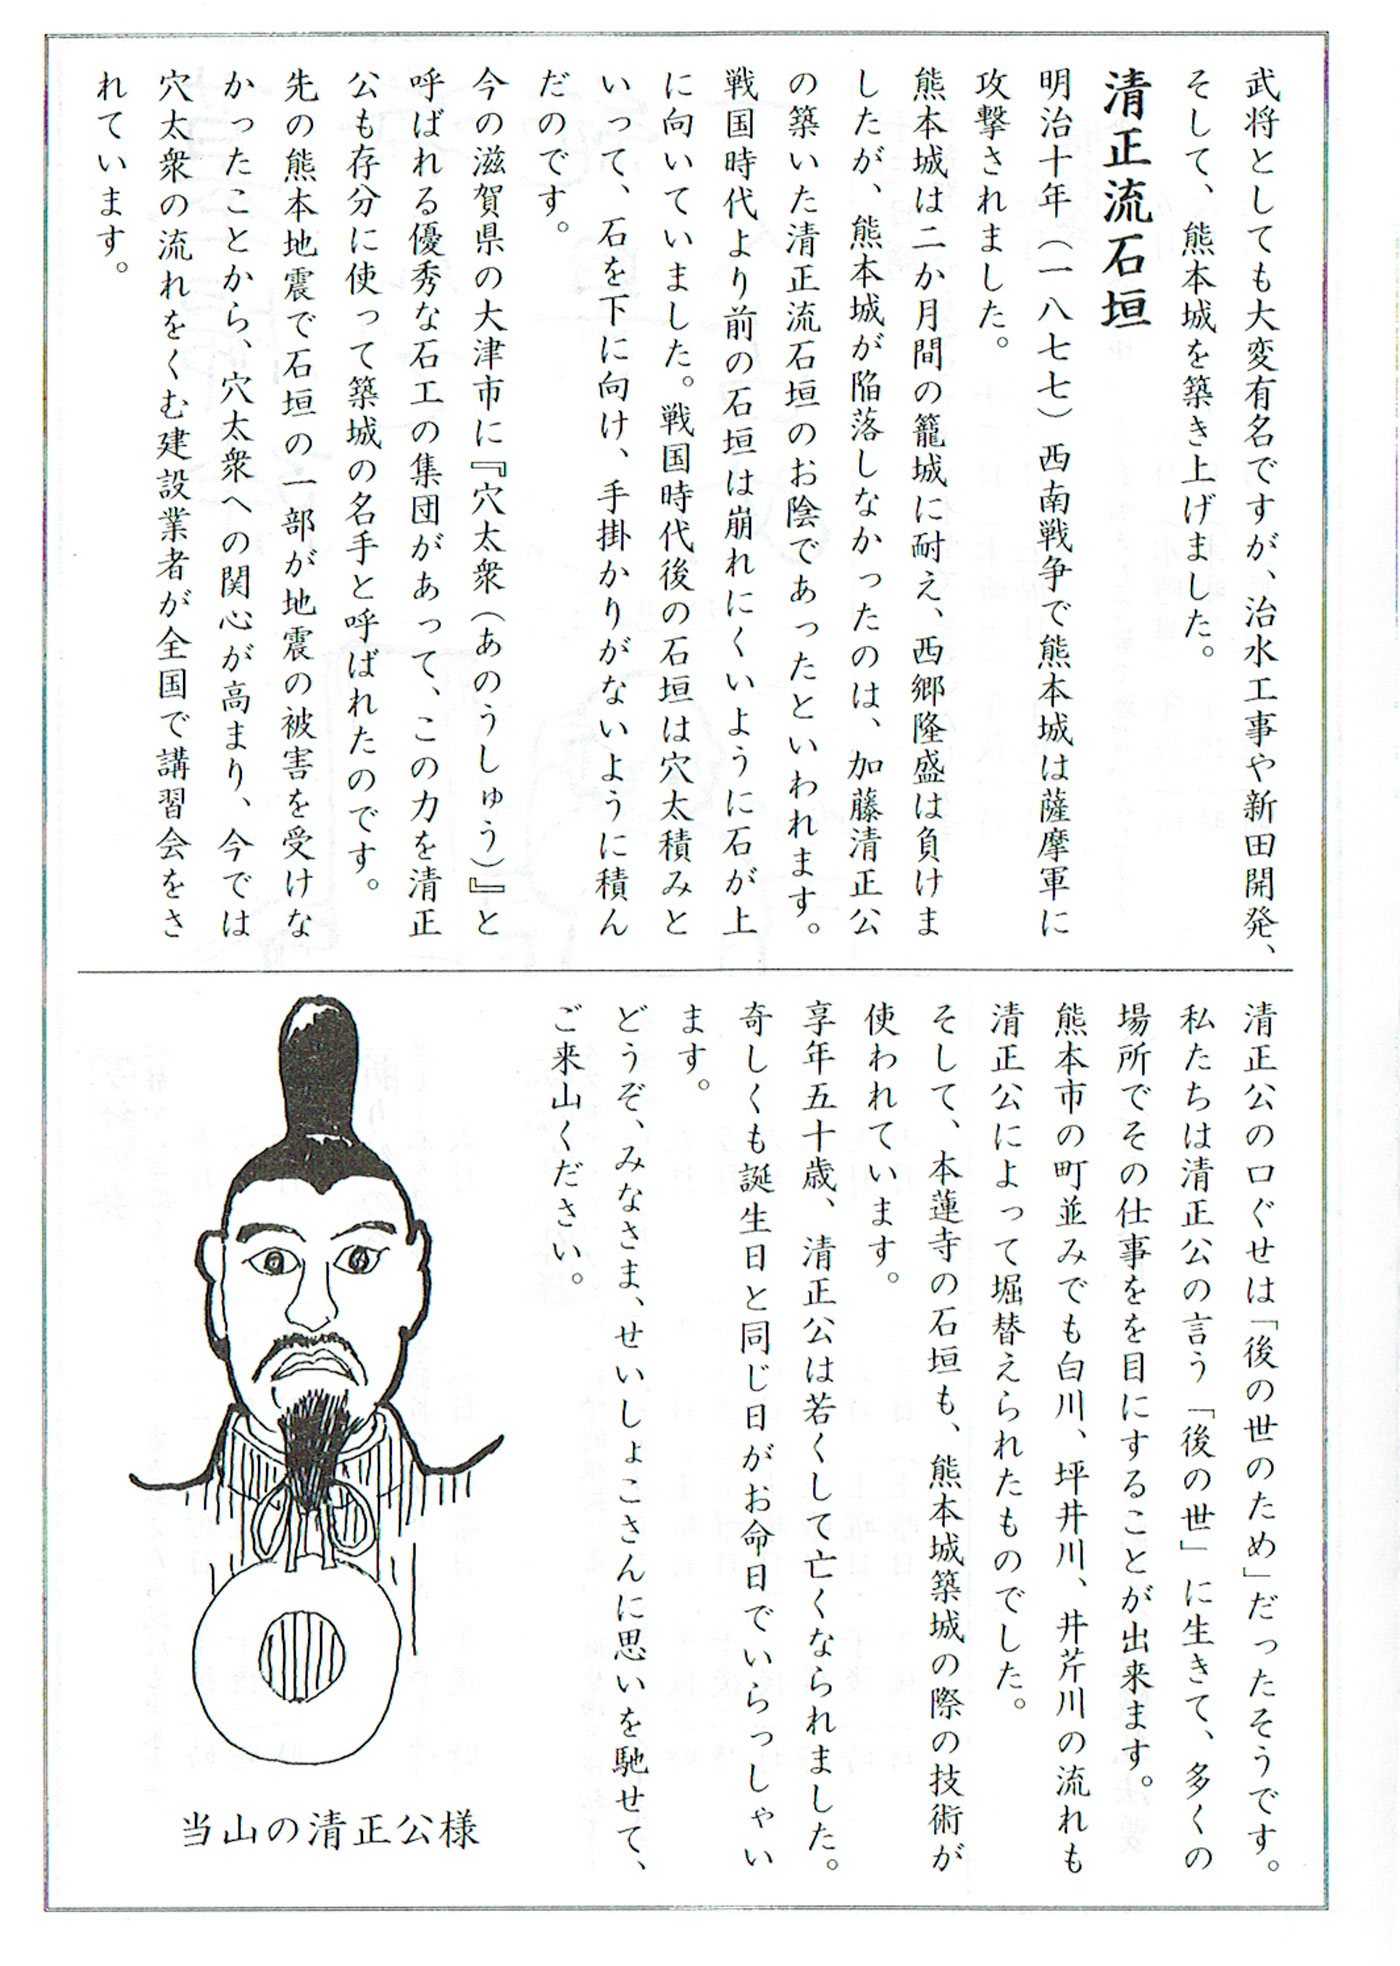 武将としても大変有名ですが、治水工事や新田開発、
そして、熊本城を築き上げました。
清正流石垣
明治十年（一八七七）西南戦争で熊本城は薩摩軍に
攻撃されました。
熊本城は二か月間の籠城に耐え、西郷隆盛は負けま
したが、熊本城が陥落しなかったのは、加藤清正公
の築いた清正流石垣のお陰であったといわれます。
戦国時代より前の石垣は崩れにくいように石が上
に向いていました。戦国時代後の石垣は穴太積みと
いって、石を下に向け、手掛かりがないように積ん
だのです。
今の滋賀県の大津市に『穴太衆（あのうしゅう）』と
呼ばれる優秀な石工の集団があって、この力を清正
公も存分に使って築城の名手と呼ばれたのです。
先の熊本地震で石垣の一部が地震の被害を受けな
かったことから、穴太衆への関心が高まり、今では
穴太衆の流れをくむ建設業者が全国で講習会をさ
れています。
清正公の口ぐせは「後の世のため」だったそうです。
私たちは清正公の言う「後の世」に生きて、多くの
場所でその仕事をを目にすることが出来ます。
熊本市の町並みでも白川、坪井川、井芹川の流れも
清正公によって堀替えられたものでした。
そして、本蓮寺の石垣も、熊本城築城の際の技術が
使われています。
享年五十歳、清正公は若くして亡くなられました。
奇しくも誕生日と同じ日がお命日でいらっしゃい
ます。
どうぞ、みなさま、せいしょこさんに思いを馳せて、
ご来山ください。
当山の清正公様